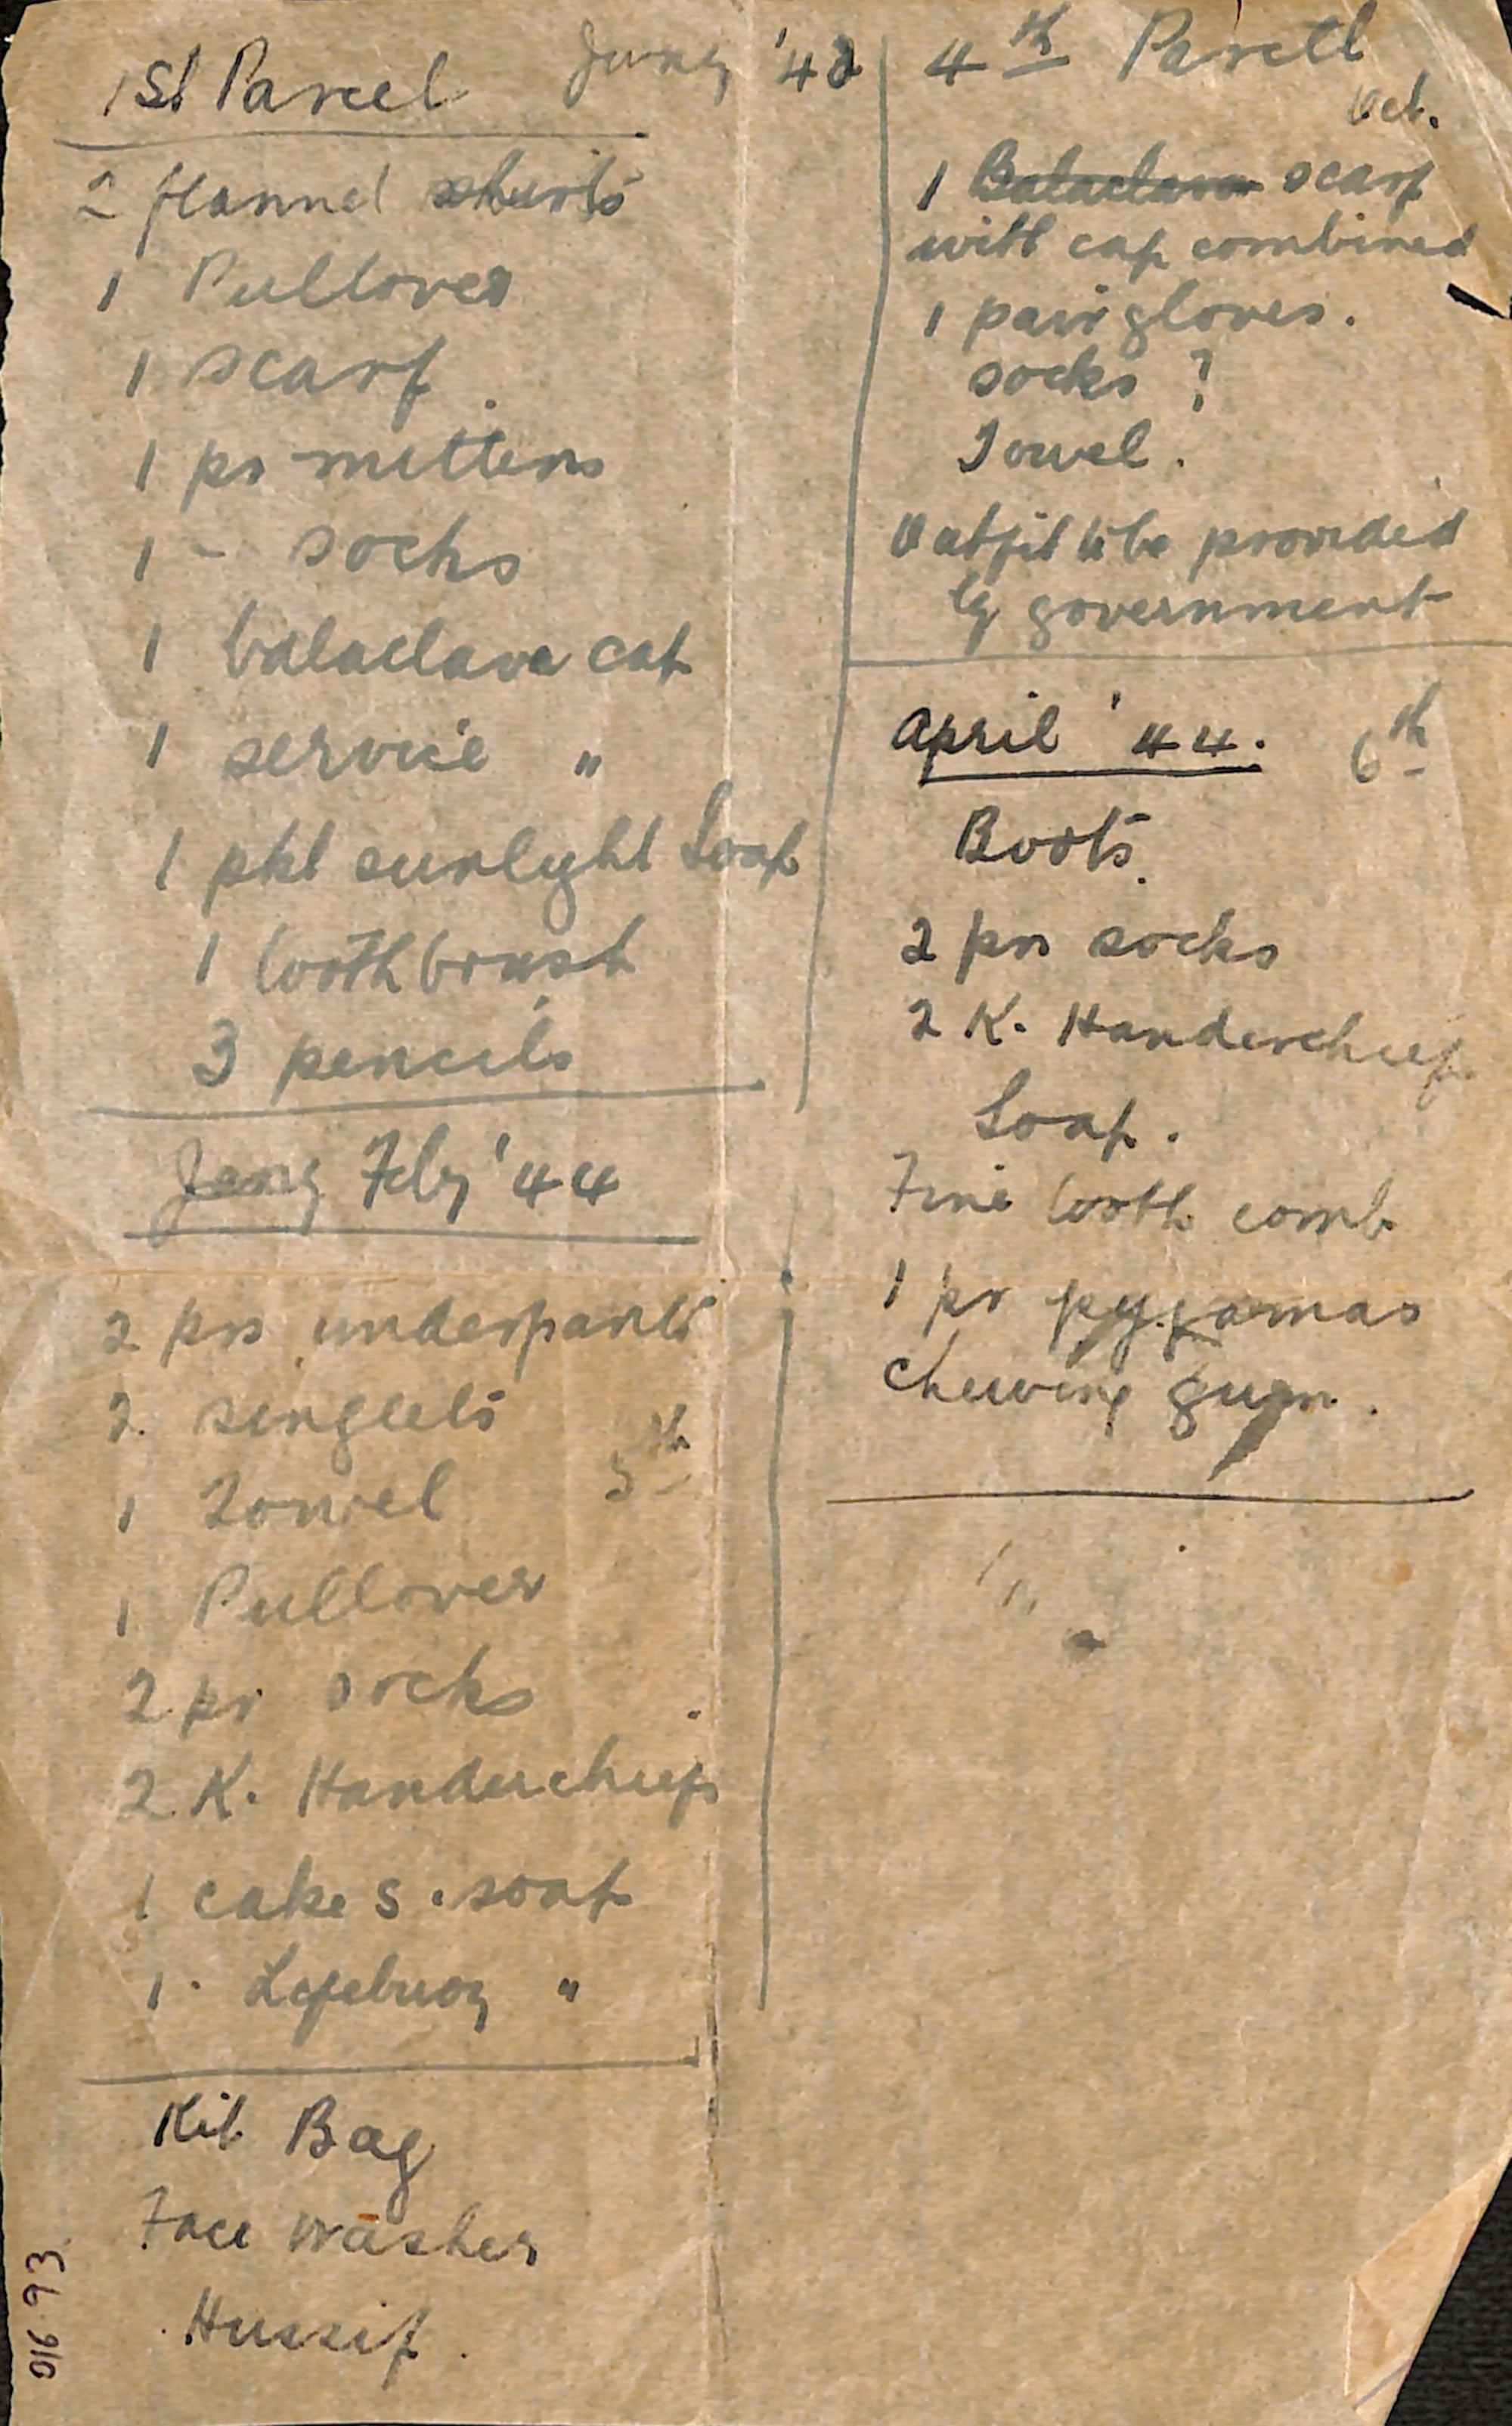 1st Parcel Jany '42
2 flannel shirts
1 Pullover
1 scarf.
1 pr mittens
1 - socks
1 balaclava cap
1 service "
1 pkt sunlight Soap
1 toothbrush
3 pencils
Jany Feby '44
2 prs underpants
2. singlets
5th
1 Towel
1 Pullover
2 pr socks
2 K. Handerchiefs
1 cake s. soap
1 - "
Kit Bag
Face Washer
Hussif.
4th Parcel
Oct.
1 Balaclava scarf
with cap combined
1 pair gloves.
socks ?
Towel.
Outfit to be provided
by government
April '44. 6th
Boots.
2 prs socks
2 K. Handerchiefs
Soap.
Fine tooth comb
1 pr pyjamas
Chewing gum.
016 93